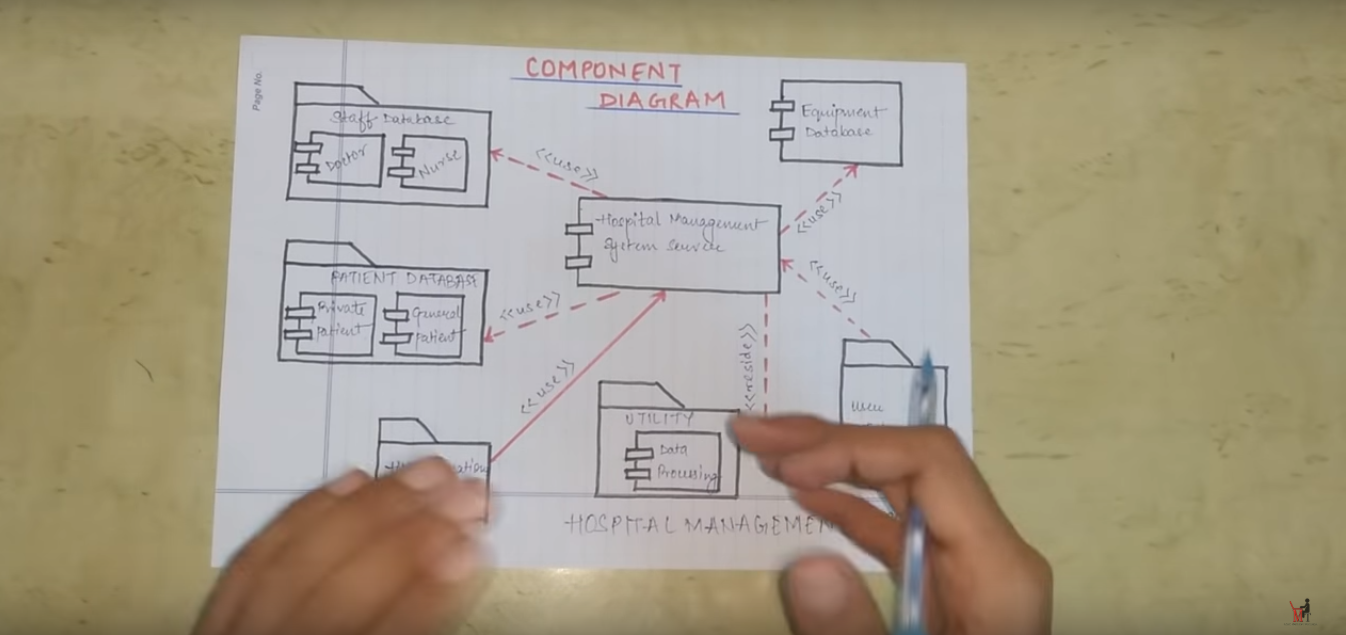 Page No.
COMPONENT
DIAGRAM
Staff Database
Doctor
Nurse
<<use>>
Equipment
Database
<<use>>
Hospital Management
System
<<use>>
PATIENT DATABASE
Private
patient
General
patient
<<use>>
<<use>>
<<reside>>
UTILITY
Data
Processing
HOSPITAL MANAGEMEN